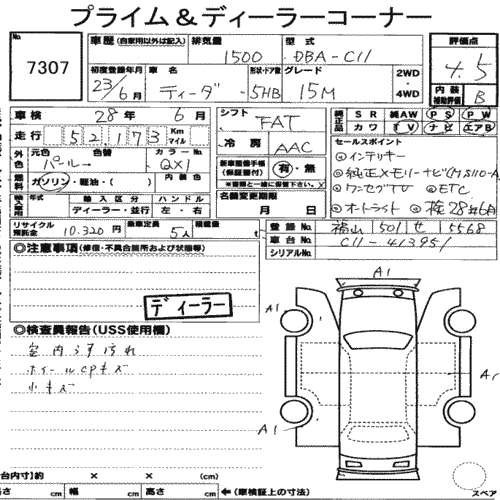 プライム&ディーラーコーナー
No. 7307
車歴 (自家用以外は記入) 排気量 1500 型式 DBA-C11
評価点 4.5
初度登録年月 23/6月 車名 ティーダ 形状・ドア数 5HB グレード 15M 2WD・4WD
内装補助評価 B
車検 28年 6月
走行 52,173 Km マイル
シフト FAT
冷房 AAC
純正品 SR 純AW PS PW
カワ TV ナビ エアB
外色 元色 パール 色替 カラーNo. QX1
燃料 ガソリン・軽油・( ) 内装色
セールスポイント
①インテキー
②純正メモリーナビ(MS110-A)
③ワンセグTV ④ETC
⑤オートライト 検28年6月
新車整備手帳(保証書付) 有・無
※書類と一緒に提出
輸入車 年式 輸入区分 ハンドル
ディーラー・並行 左・右
名義変更期限 月 日
リサイクル預託金 10,320円 乗車定員 5人 積載量 t
登録No. 福山 501 せ 5568
車台No. C11-413951
シリアルNo.
注意事項 (修復・不具合箇所および状態)
ディーラー
検査員報告(USS使用欄)
室内うす汚れ
ホイールCPキズ
小キズ
A1
A1
A1
A1
(cm)
長さ cm 幅 cm 高さ cm ←(車検証上の寸法)
スペア